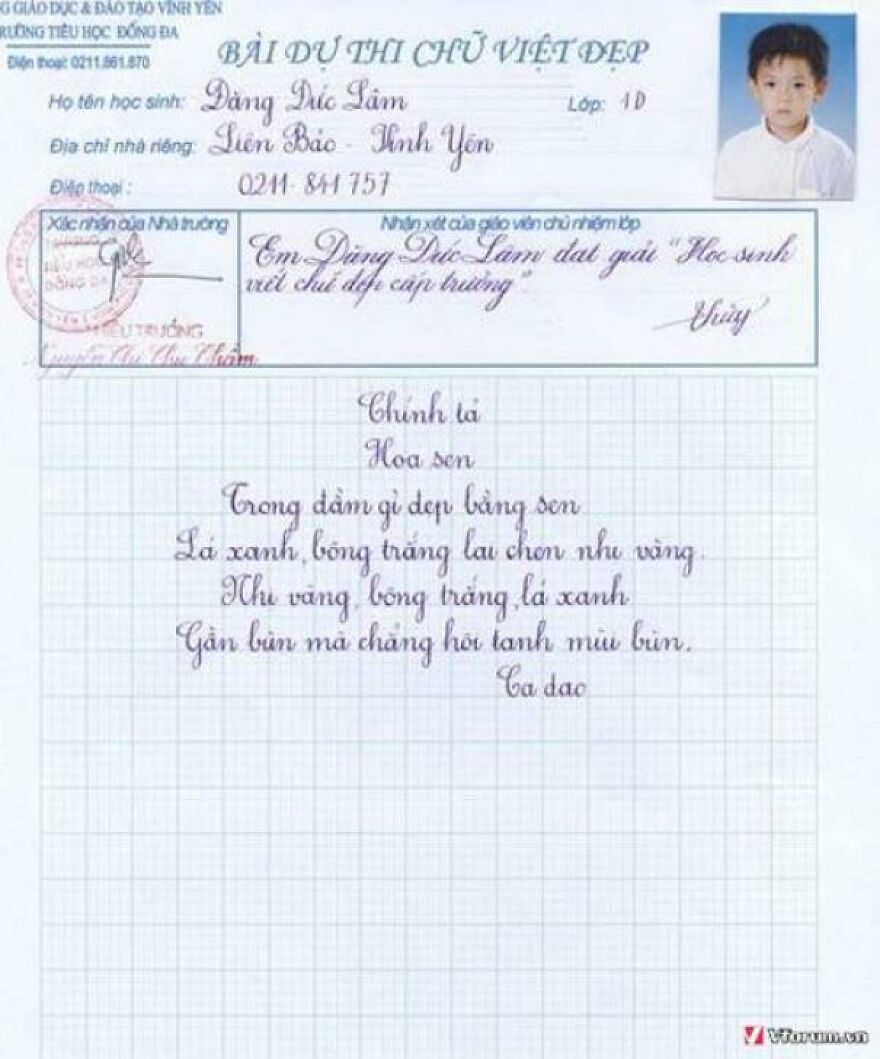 G GIÁO DỤC & ĐÀO TẠO VĨNH YÊN
RƯỜNG TIỂU HỌC ĐỐNG ĐA
Điện thoại: 0211.861.870
BÀI DỰ THI CHỮ VIỆT ĐẸP
Họ tên học sinh: Đặng Đức Lâm Lớp: 1D
Địa chỉ nhà riêng: Liên Bảo - Vĩnh Yên
Điện thoại: 0211-841 757
Xác nhận của Nhà trường
Nhận xét của giáo viên chủ nhiệm lớp
Em Đặng Đức Lâm đạt giải "Học sinh
viết chữ đẹp cấp trường".
Thùy
TIỂU HỌC
ĐỐNG ĐA
HIỆU TRƯỞNG
Chính tả
Hoa sen
Trong đầm gì đẹp bằng sen
Lá xanh, bông trắng lại chen nhị vàng.
Nhị vàng, bông trắng, lá xanh
Gần bùn mà chẳng hôi tanh mùi bùn.
Ca dao
Vforum.vn